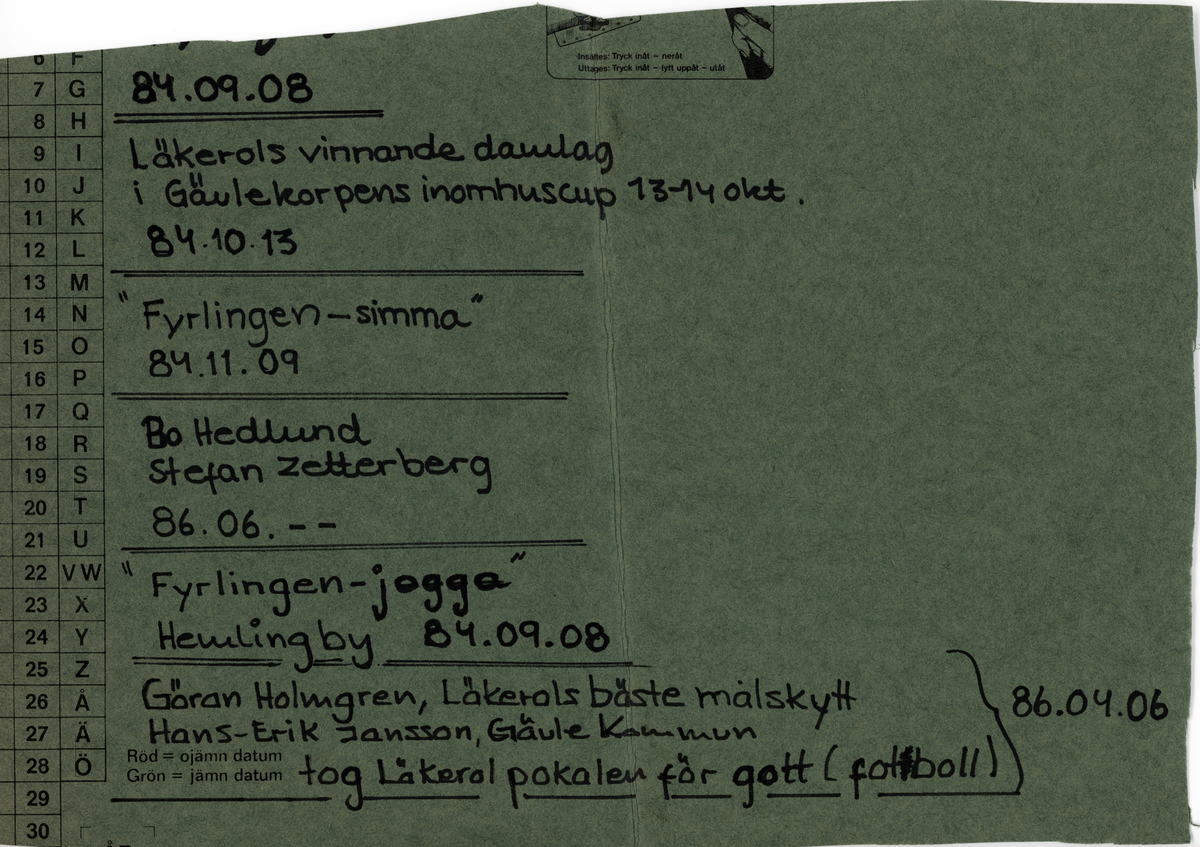 Insättes: Tryck inåt – neråt
Uttages: Tryck inåt – lyft uppåt – utåt
6 F
7 G 84.09.08
8 H
9 I Läkerols vinnande damlag
10 J i Gävlekorpens inomhuscup 13-14 okt.
11 K
12 L 84.10.13
13 M
14 N "Fyrlingen – simma"
15 O
16 P 84.11.09
17 Q
18 R Bo Hedlund
19 S Stefan Zetterberg
20 T 86.06.--
21 U
22 VW "Fyrlingen-jogga"
23 X
24 Y Hemlingby 84.09.08
25 Z
26 Å Göran Holmgren, Läkerols bäste målskytt
86.04.06
27 Ä Hans-Erik Jansson, Gävle Kommun
Röd = ojämn datum
28 Ö Grön = jämn datum tog Läkerol pokalen för gott (fotboll)
29
30